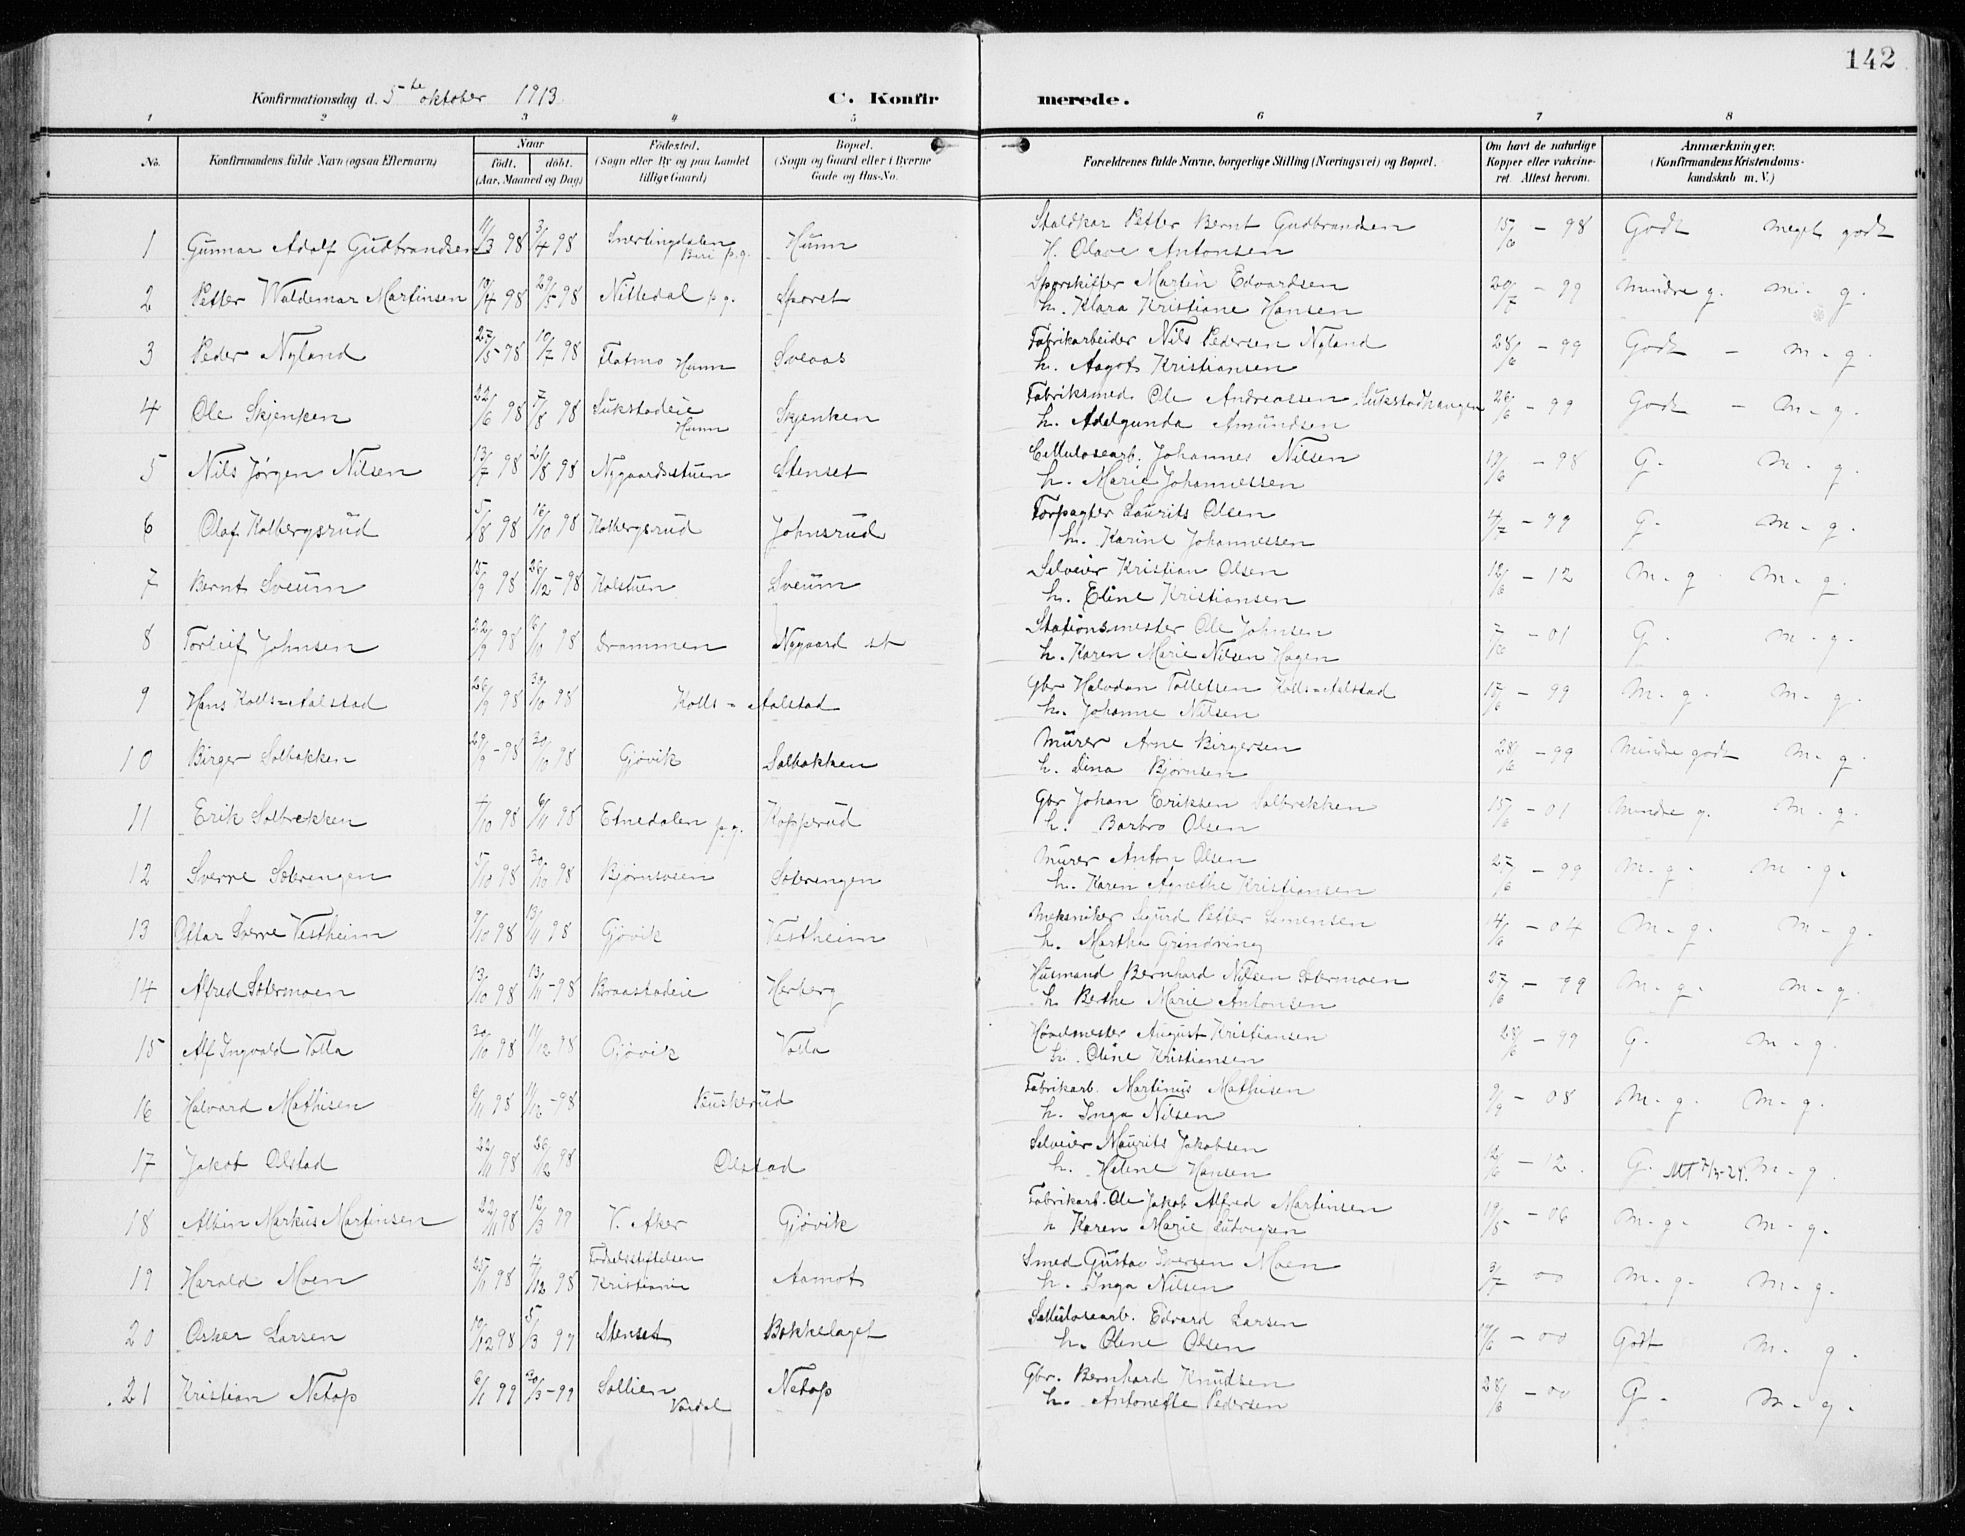 142
Konfirmationsdag d. 5te oktober 1913
C. Konfir merede.
1 2 3 4 5 6 7 8
No. Konfirmandens fulde Navn (ogsaa Efternavn) Naar födt. döbt. (Aar, Maaned og Dag) Födested. (Sogn eller By og paa Landet tillige Gaard) Bopæl. (Sogn og Gaard eller i Byerne Gade og Hus-No. Forældrenes fulde Navne, borgerlige Stilling (Næringsvei) og Bopæl. Om havt de naturlige Kopper eller vakcineret. Attest herom. Anmærkninger. (Konfirmandens Kristendomskundskab m. V.)
1 Gunnar Adolf Gudbrandsen 11/3 98 3/4 98 Snertingdalen Biri p.g. Hunn Staldkar Petter Bernt Gudbrandsen 15/6 - 98 Godt meget godt
H. Olave Antonsen
2 Petter Waldemar Martinsen 19/4 98 29/5 98 Nittedal p.g. Sporet Sporskifter Martin Edvardsen 20/7 - 99 Mindre g. m. g.
h. Klara Kristiane Hansen
3 Peder Nyland 27/5 - 98 10/7 98 Flatmo Hunn Sveaas Fabrikarbeider Nils Pedersen Nyland 28/6 - 99 Godt - m - g.
h. Aagot Kristiansen
4 Ole Skjenken 22/6 98 7/8 98 Sukstadeie Hunn Skjenken Fabriksmed. Ole Andreassen Sukstadhaugen 26/6 - 99 Godt - m - g.
h. Adelgunda Amundsen
5 Nils Jørgen Nilsen 13/7 98 21/8 98 Nygaardsstuen Stenset Cellulosearb. Johannes Nilsen 13/6 - 98 G. m. g.
h. Marie Johannessen
6 Olaf Kolbergsrud 5/8 98 16/10 98 Kolbergsrud Johnsrud Forpagter Laurits Olsen 4/7 - 99 G. m - g.
h. Karine Johannessen
7 Bernt Sveum 15/9 98 26/12 - 98 Kolstuen Sveum Selveier Kristian Olsen 12/6 - 12 m - g m - g.
h. Eline Kristiansen
8 Torleif Johnsen 22/9 98 16/10 98 Drammen Nygaard st Stationsmester Ole Johnsen 01 G. m - g.
h. Karen Marie Nilsen Hagen
9 Hans Kolls-Aalstad 26/9 98 30/10 98 Kolls - Aalstad Gbr Halvdan Tollefsen Kolls-Aalstad 15/6 - 99 m - g. m - g.
h. Johanne Nilsen
10 Birger Solbakken 29/9 - 98 30/10 98 Gjøvik Solbakken Murer Arne Birgersen 28/6 - 99 Mindre godt m - g.
h. Lina Bjørnsen
11 Erik Solbrekken 4/10 98 6/11 98 Etnedalen p.g. Kopperud Gbr Johan Eriksen Solbrekken 15/6 - 01 Mindre g. m - g.
h. Barbro Olsen
12 Sverre Sæterengen 5/10 98 30/10 98 Bjørnsveen Sæterengen Murer Anton Olsen 27/6 - 99 m - g. m - g.
h. Karen Agnethe Kristiansen
13 Ottar Sverre Vestheim 9/10 98 13/11 98 Gjøvik Vestheim Mekaniker Sigurd Petter Simensen 14/6 - 04 m - g. m - g.
h. Marthe Grindvring
14 Alfred Sætermoen 13/10 98 13/11 - 98 Braastadeie Herberg Husmand Bernhard Nilsen Sætermoen 27/6 - 99 m - g. m - g.
h. Berthe Marie Antonsen
15 Alf Ingvald Volla 30/10 98 11/12 98 Gjøvik Volla August Kristiansen 28/6 - 99 G. m - g.
h. Oline Kristiansen
16 Halvard Mathisen 6/11 98 11/12 - 98 Buskerud Fabrikarb. Martinus Mathisen 9/9 - 08 m - g. m - g.
h. Inga Nilsen
17 Jakob Olstad 22/11 98 26/12 98 Olstad Selveier Maurits Jakobsen 12/6 - 12. G. m - g.
h. Helene Hansen
18 Albin Markus Martinsen 22/11 98 12/3 99 V. Aker Gjøvik Fabrikarb. Ole Jakob Alfred Martinsen 19/5 - 06 m - g. m - g.
h Karen Marie Ludvigsen
19 Harald Moen 25/11 98 4/12 98 Fødselsstiftelsen Kristiania Aamot Smed Gustav Iversen Moen 9/7 00 m - g. m - g.
h. Inga Nilsen
20 Osker Larsen 19/12 98 5/3 99 Stenset Bakkelaget Sellulosearb. Edvard Larsen - 00 Godt m - g.
h. Oline Olsen
21 Kristian Netop 6/1 99 30/3 - 99 Sollien Vardal Netop Gbr. Bernhard Knudsen 28/6 - 00 G - m - g.
h. Antonette Pedersen